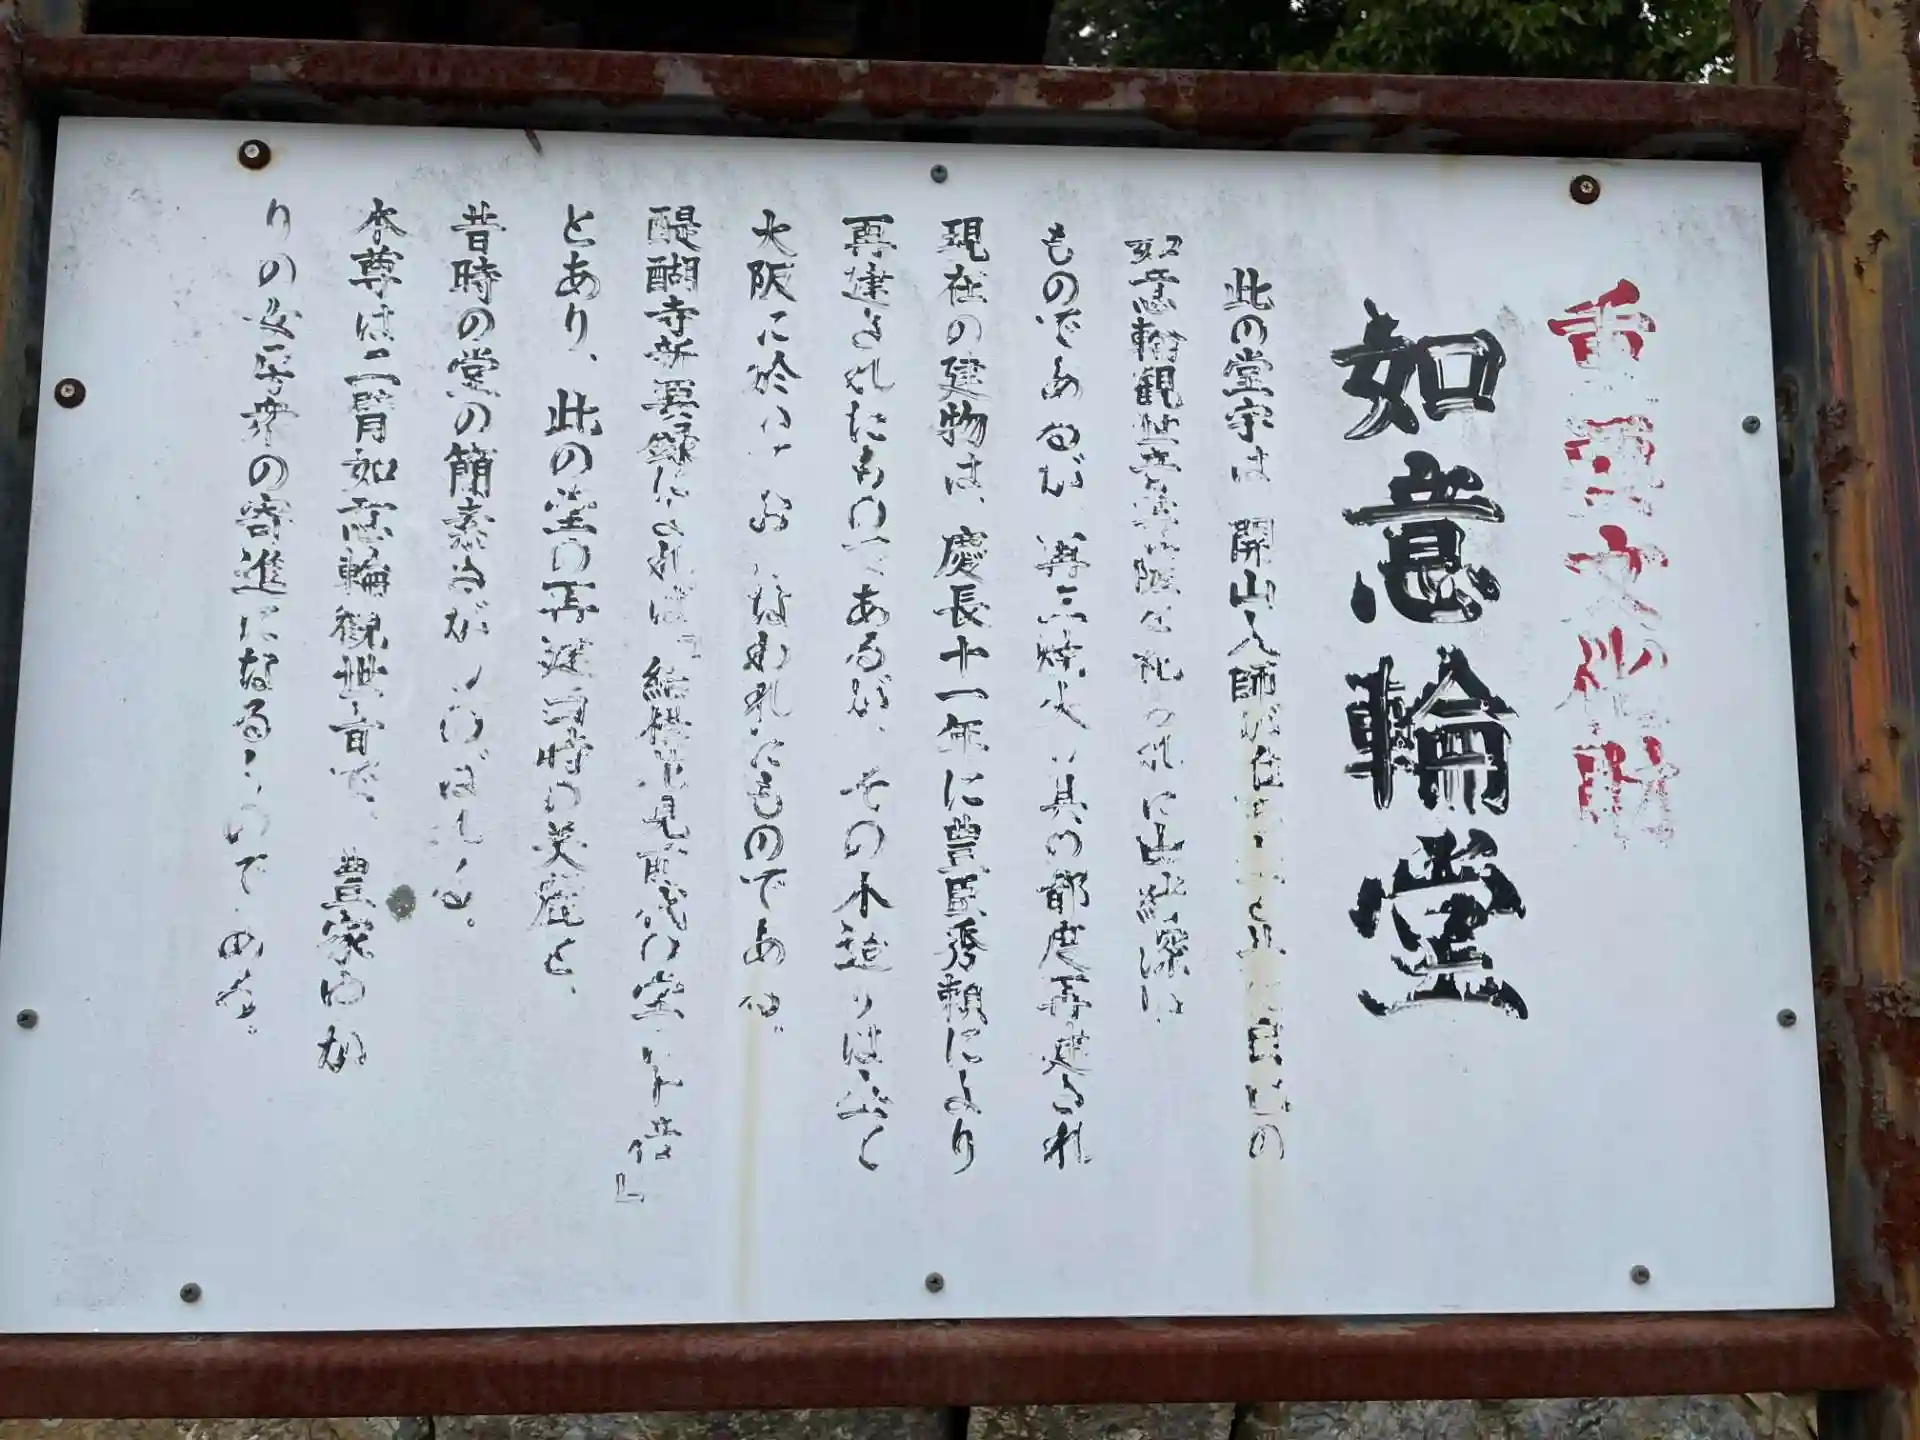 重要文化財
如意輪堂
此の堂宇は 開山大師
如意輪観世音菩薩を祀られた
ものであるが 再三焼失し其の都度再建され
現在の建物は、慶長十一年に豊臣秀頼により
再建されたものであるが、その木造りは
大阪に於いて おこなわれたものである。
醍醐寺新要録によれば、「結構 見 前代の堂 十倍」
とあり、此の堂の再建当時の美麗と、
昔時の堂の簡素さがしのばれる。
本尊は二臂如意輪観世音で、豊家ゆか
りの 衆の寄進になるものである。